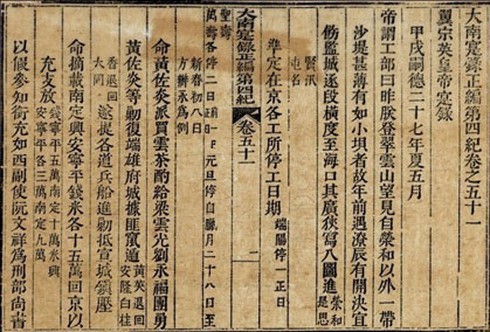 大南寔錄正編第四紀卷之五十一
翼宗英皇帝寔錄
甲戌嗣德二十七年夏五月
帝謂工部曰昨朕登翠雲山望見自榮和以外一帶
沙堤甚薄有如小垻者故年前遇潦辰有開決宜
傍監城逐段橫度至海口其廣狹寫八圖進榮和是思
賢汛屯名
準定在京各工所停工日期端陽停一正日
大南寔錄正編第四紀 卷五十一 一
聖壽
萬壽各停二日正前一日元旦停自臘月二十八日至
新春初八日方辦永為例
命黃佐炎派買雲茶酌給梁雲光劉永福團勇
黃佐炎等勦復端雄府城據匪竄遁黃英退回安隆白桂
香退回大同遂提各道兵船進勦抵宣城鎮壓
命摘載南定興安寧平錢米各十五萬回京以
充支放錢寧平五萬南定十萬米興安寧平各三萬南定九萬
以候參知銜充如西副使阮文祥爲刑部尚書